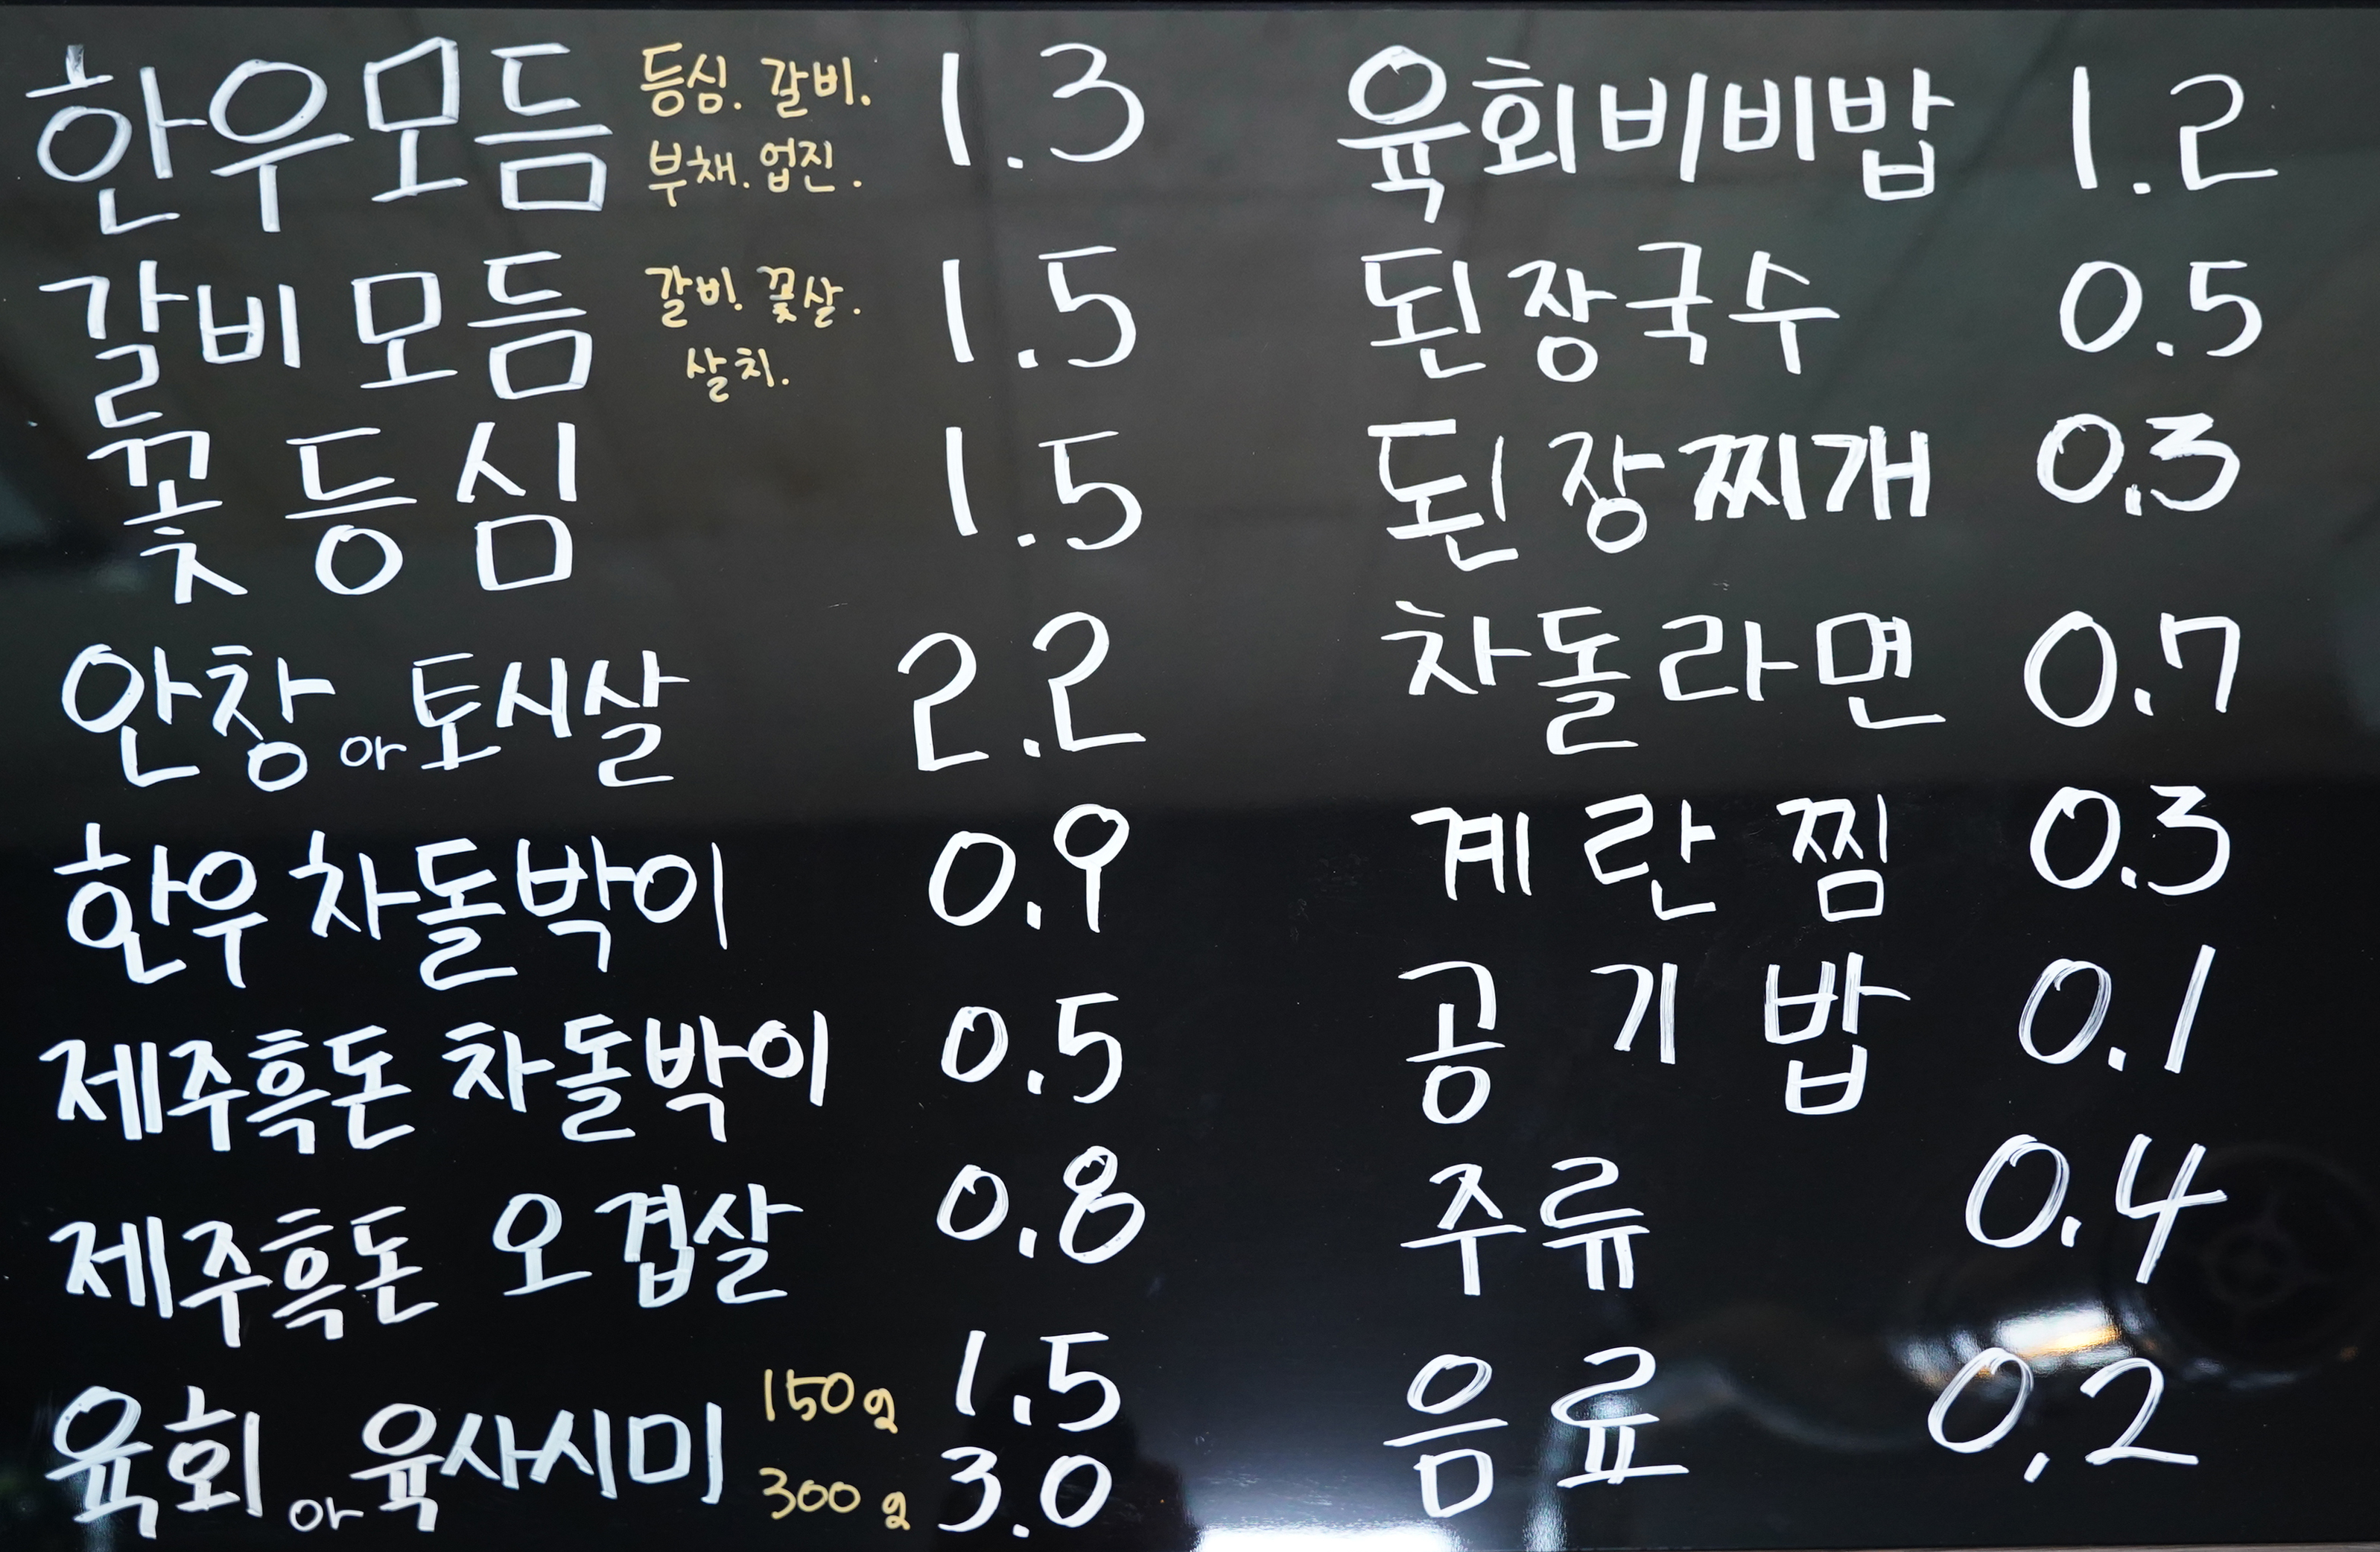 한우모듬 등심. 갈비. 1.3
부채. 업진.
갈비모듬 갈비. 꽃살. 1.5
살치.
꽃등심 1.5
안창 or 토시살 2.2
한우 차돌박이 0.9
제주흑돈 차돌박이 0.5
제주흑돈 오겹살 0.8
육회 or 육사시미 150g 1.5
300g 3.0
육회비비밥 1.2
된장국수 0.5
된장찌개 0.3
차돌라면 0.7
계란찜 0.3
공기밥 0.1
주류 0.4
음료 0.2